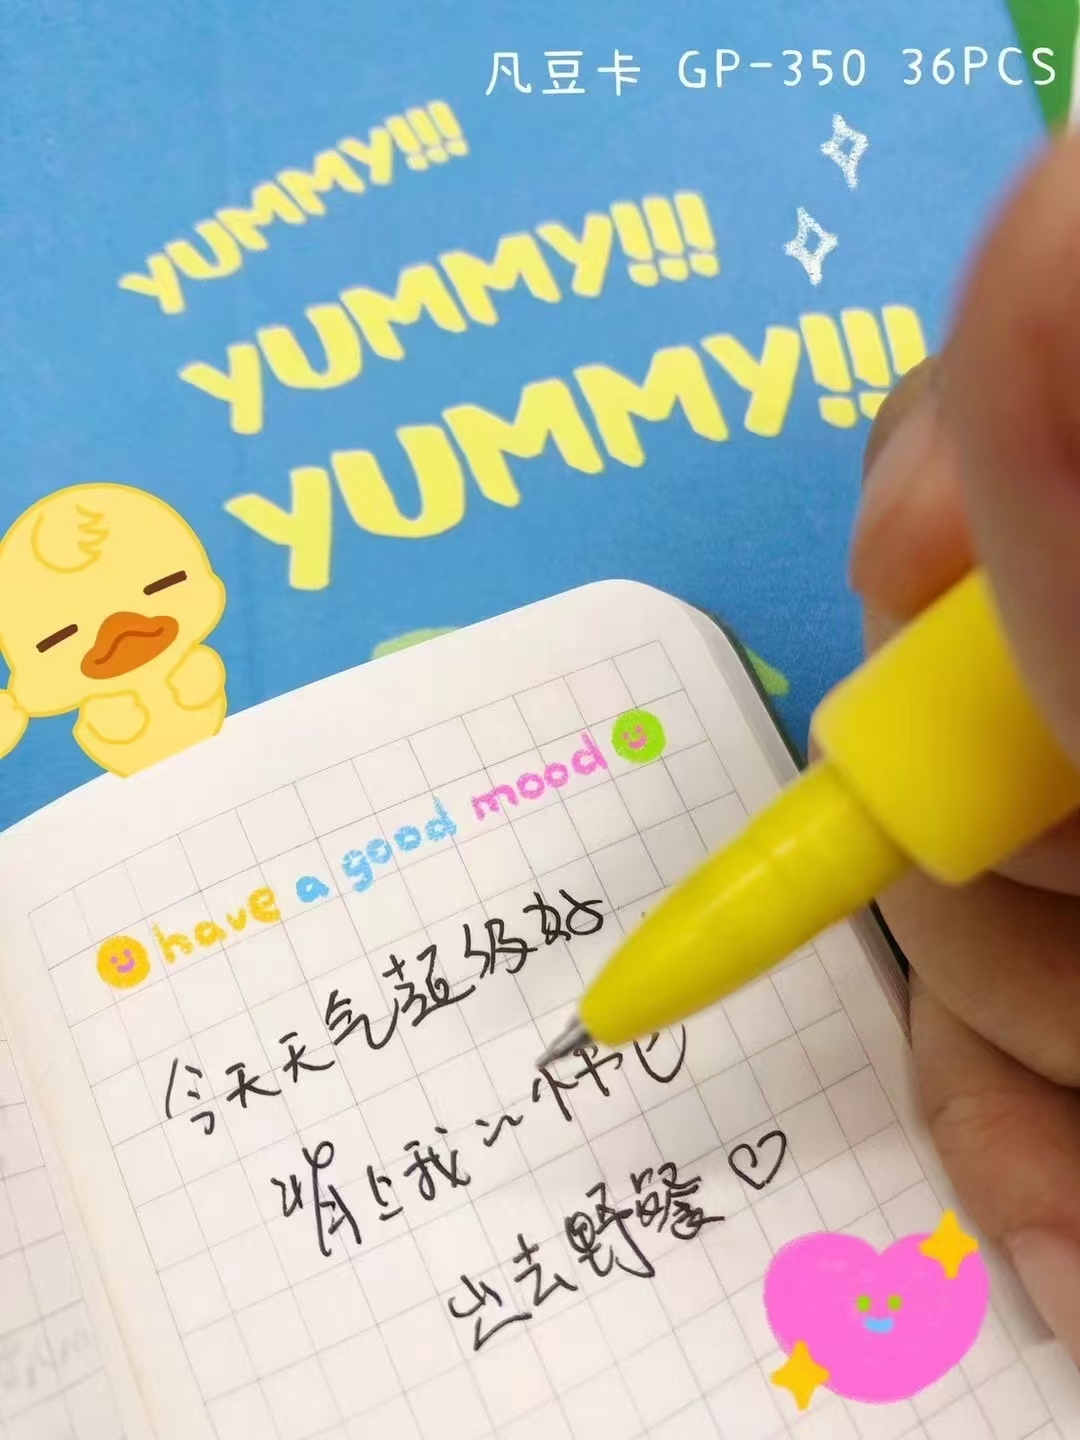 凡豆卡 GP-350 36PCS
YUMMY!!!
YUMMY!!!
YUMMY!!!
have a good mood
今天天气超级好
背上我心怀书包
出去野餐♡